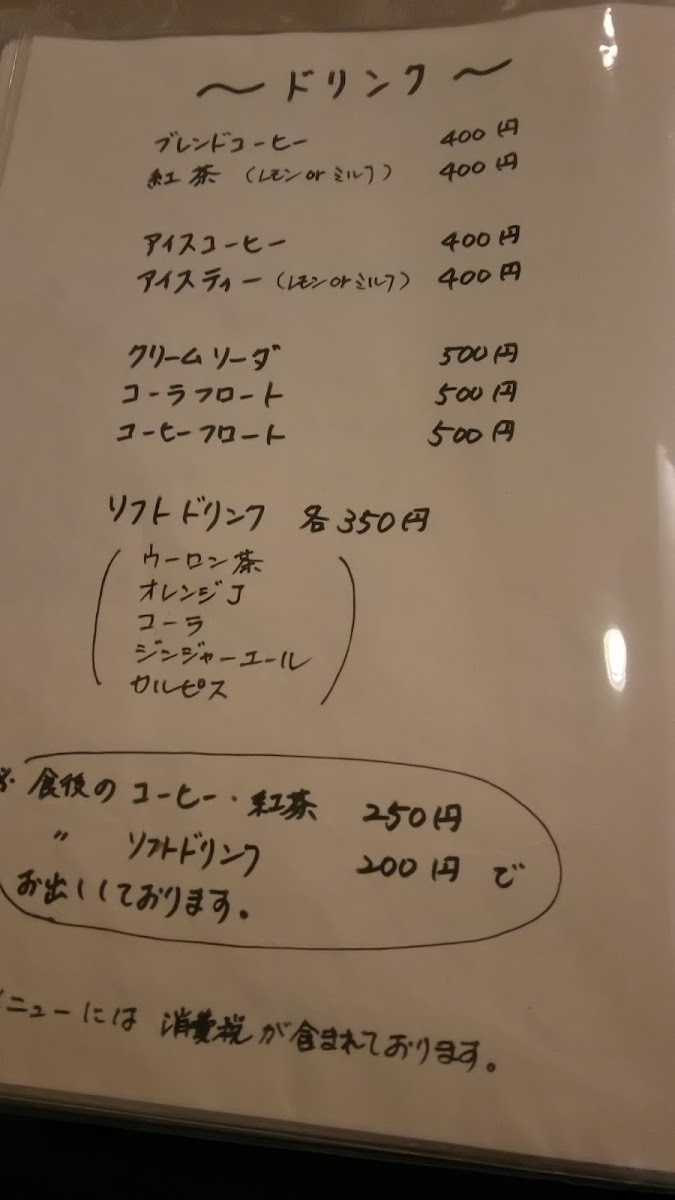 〜ドリンク〜
ブレンドコーヒー 400円
紅茶 (レモン or ミルク) 400円
アイスコーヒー 400円
アイスティー (レモン or ミルク) 400円
クリームソーダ 500円
コーラフロート 500円
コーヒーフロート 500円
ソフトドリンク 各350円
ウーロン茶
オレンジJ
コーラ
ジンジャーエール
カルピス
※. 食後の コーヒー・紅茶 250円
〃 ソフトドリンク 200円 で
お出ししております。
メニューには 消費税が含まれております。